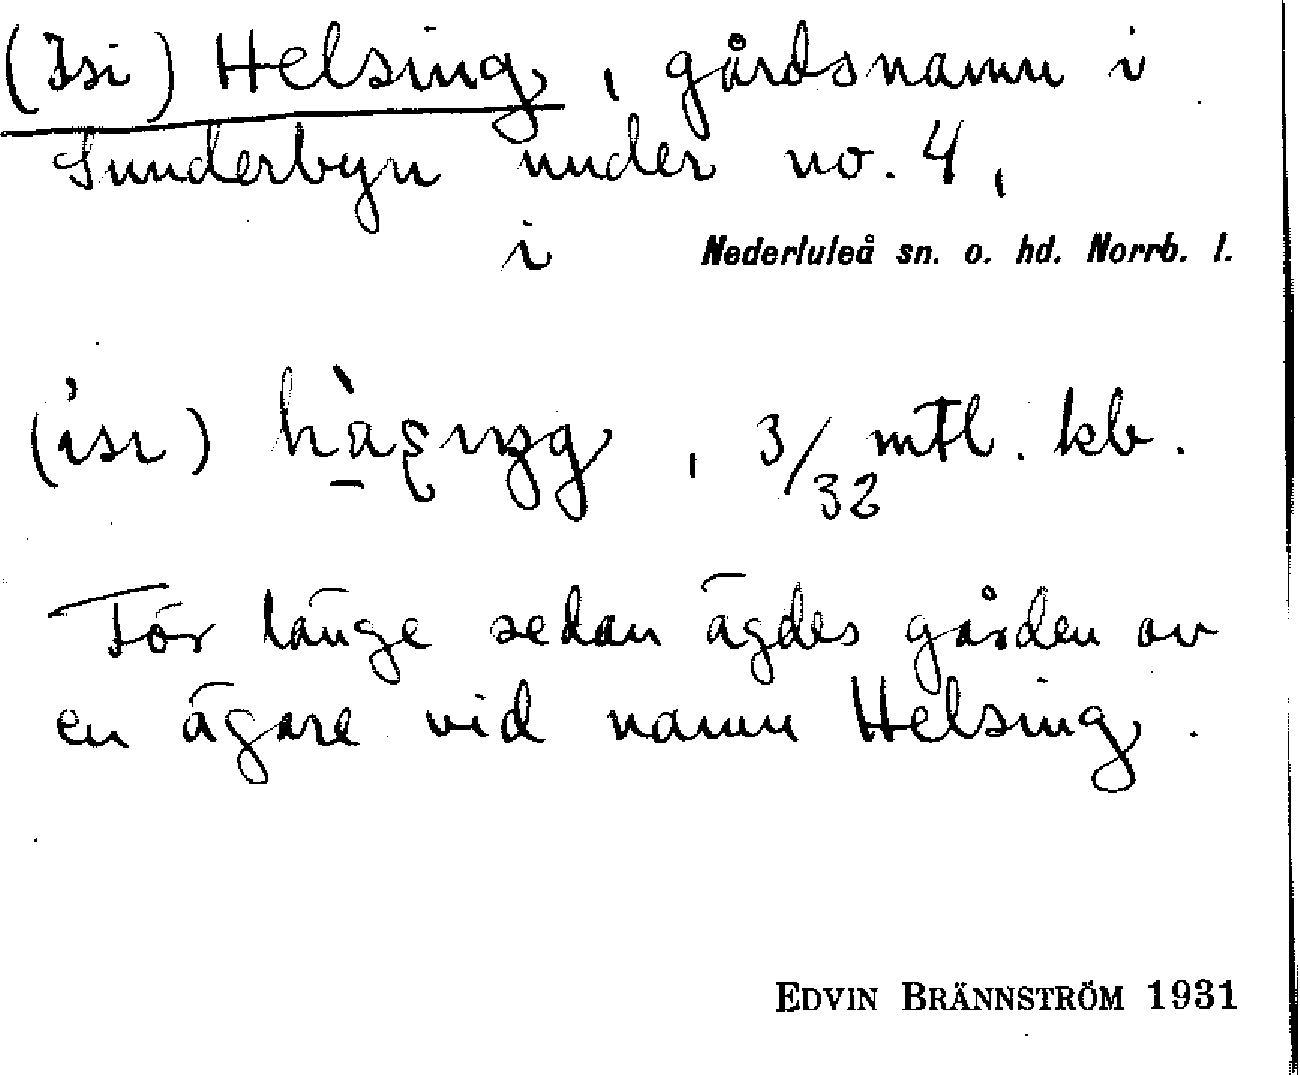 (Isi) Helsing, gårdsnamn i
Sunderbyn under no. 4,
i Nederluleå sn. o. hd. Norrb. l.
, 3/32 mtl. kb.
För länge sedan ägdes gården av
en ägare vid namn Helsing.
EDVIN BRÄNNSTRÖM 1931